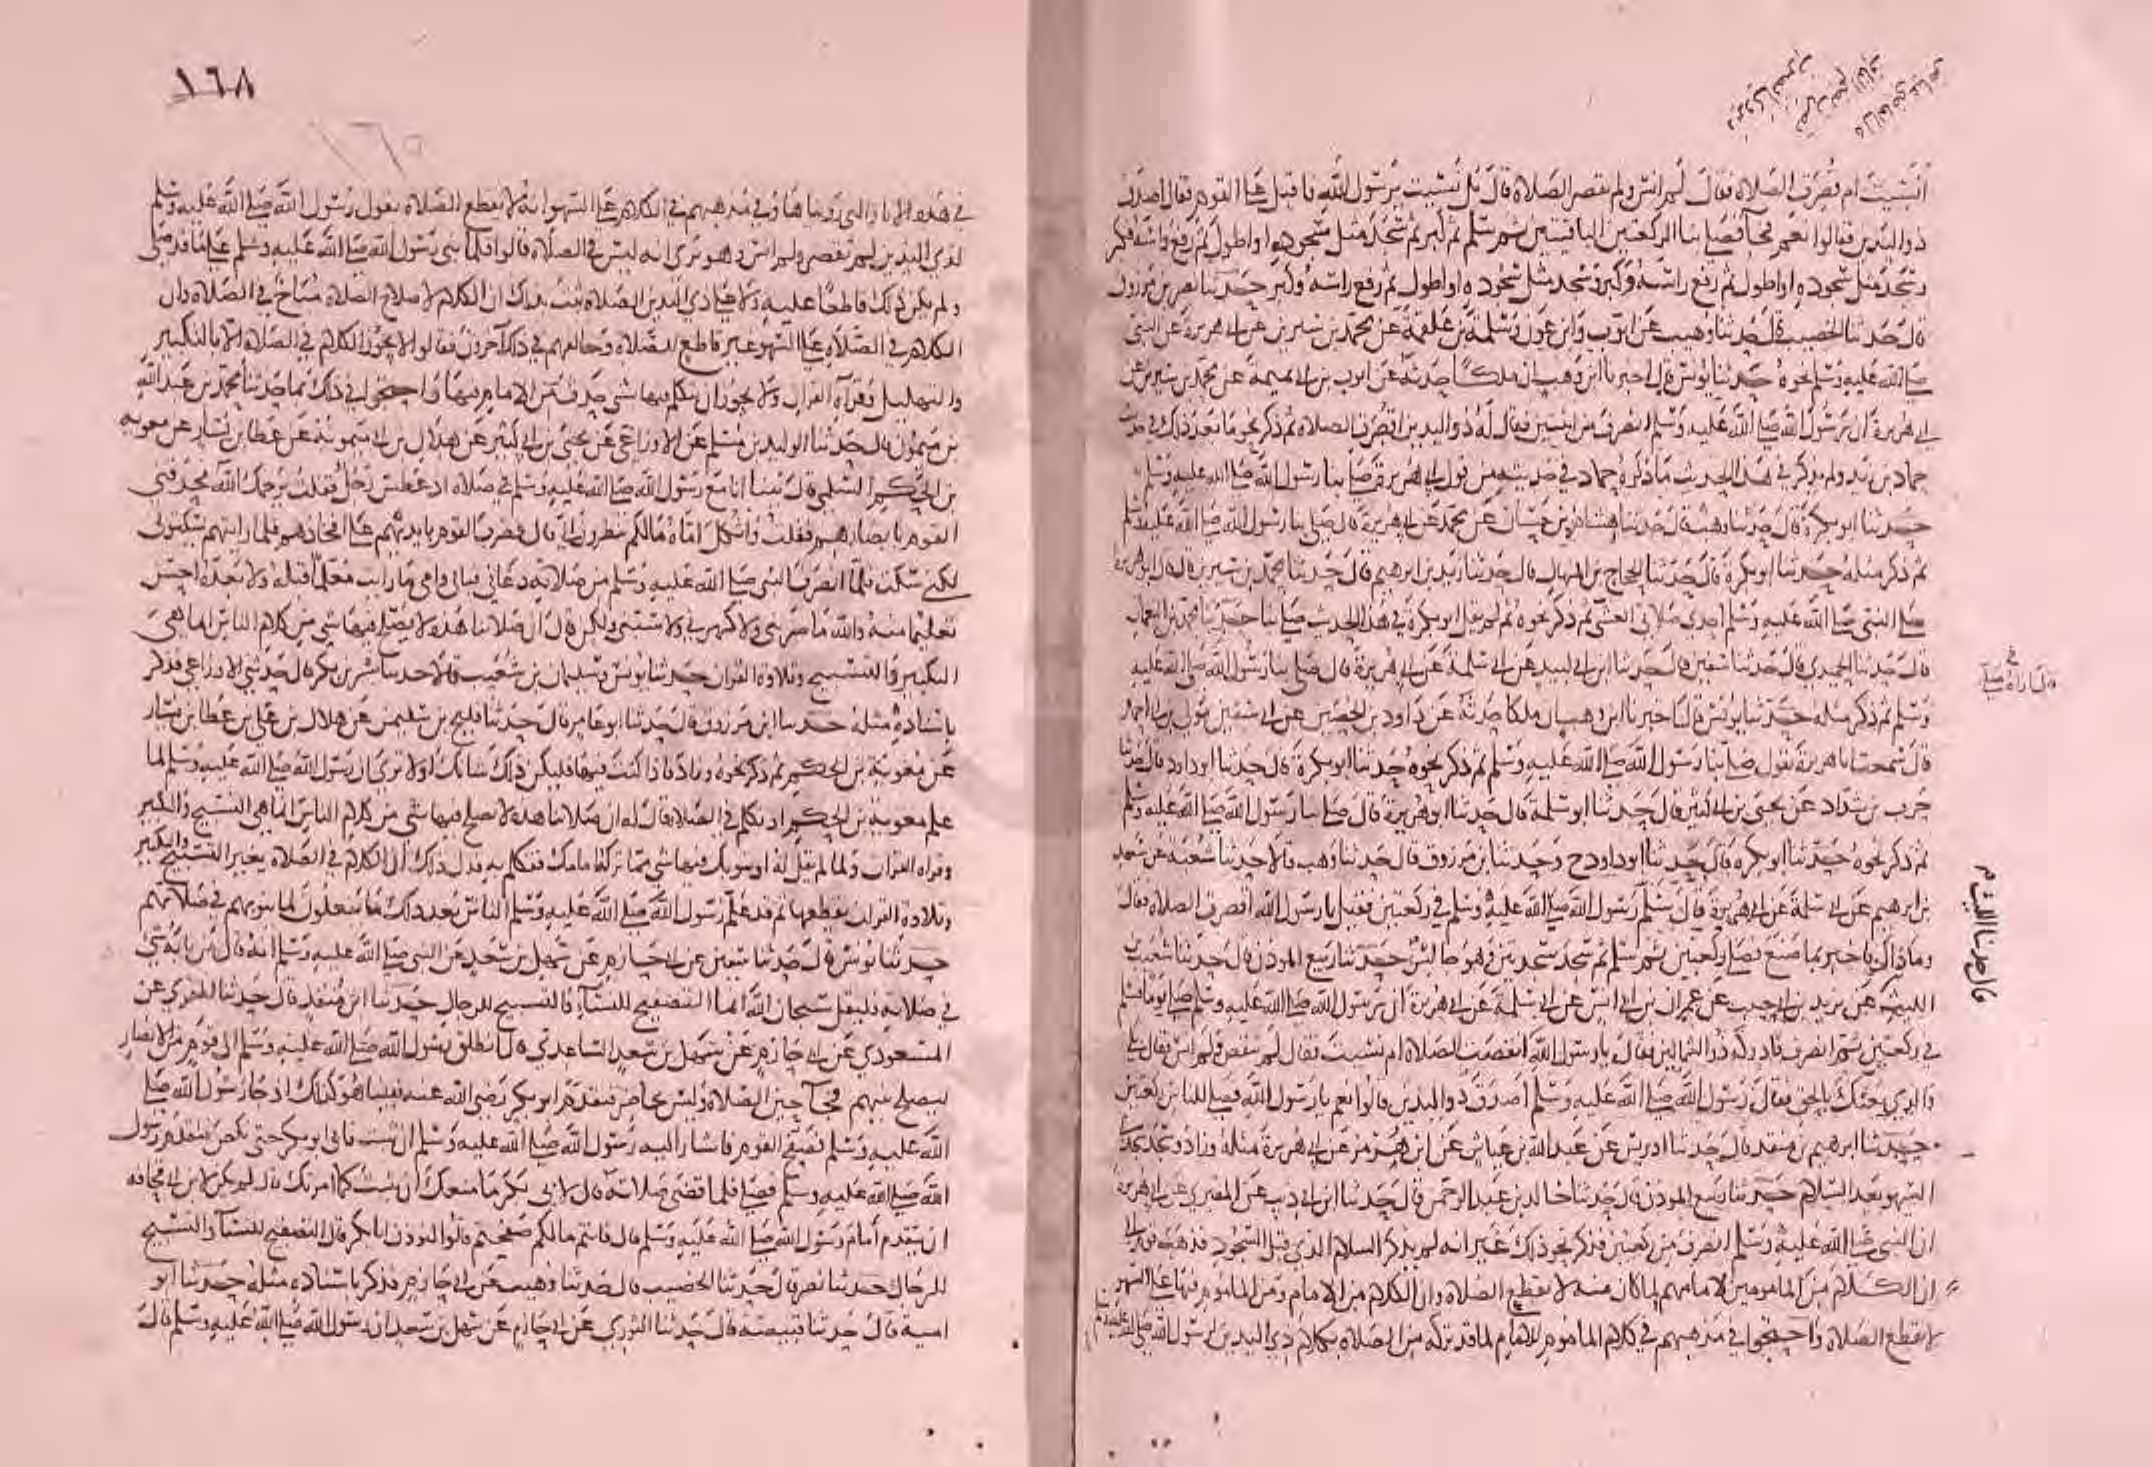 أنسيت أم قصرت الصلاة فقال لم انس ولم تقصر الصلاة قال بل نسيت يرسول الله فاقبل على القوم فقال اصدق
ذو اليدين فقالوا نعم فجآ فصلى بنا الركعتين الباقيتين ثم سلم ثم كبر ثم سجد مثل سجوده او اطول ثم رفع راسه فكبر
وسجد مثل سجوده او اطول ثم رفع راسه وكبر وسجد مثل سجوده او اطول ثم رفع راسه وكبر حدثنا نصر بن مرزوق
قال حدثنا الخصيب قال حدثنا وهيب عن ايوب وابن عون وسلمة بن علقمة عن محمد بن سيرين عن ابي هريرة عن النبي
صلى الله عليه وسلم نحوه حدثنا يونس قال اخبرنا ابن وهب ان ملكا حدثه عن ايوب بن ابي تميمة عن محمد بن سيرين عن
ابي هريرة ان رسول الله صلى الله عليه وسلم انصرف من اثنتين فقال له ذو اليدين اقصرت الصلاة ثم ذكر نحو ما بعد ذلك في حديث
حماد بن زيد ولم يذكر في هذا الحديث ما ذكره حماد في حديثه من قول ابي هريرة صلى بنا رسول الله صلى الله عليه وسلم
حدثنا ابو بكرة قال حدثنا وهب قال حدثنا هشام بن حسان عن محمد عن ابي هريرة قال صلى بنا رسول الله صلى الله عليه وسلم
ثم ذكر مثله حدثنا ابو بكرة قال حدثنا الحجاج بن المنهال قال حدثنا يزيد بن ابرهيم قال حدثنا محمد بن سيرين قال قال ابو هريرة
صلى النبي صلى الله عليه وسلم احدى صلاتي العشي ثم ذكر نحوه ثم لم يقل ابو بكرة في هذا الحديث صلى بنا حدثنا محمد بن النعمان
قال حدثنا الحميدي قال حدثنا سفين قال حدثنا ابن ابي لبيد عن ابي سلمة عن ابي هريرة قال صلى بنا رسول الله صلى الله عليه
وسلم ثم ذكر مثله حدثنا يونس قال اخبرنا ابن وهب ان ملكا حدثه عن داود بن الحصين عن ابي سفين مولى بن ابي احمد
قال سمعت ابا هريرة يقول صلى بنا رسول الله صلى الله عليه وسلم ثم ذكر نحوه حدثنا ابو بكرة قال حدثنا ابو داود قال حدثنا
حرب بن شداد عن يحيى بن ابي كثير قال حدثنا ابو سلمة قال حدثنا ابو هريرة قال صلى بنا رسول الله صلى الله عليه وسلم
ثم ذكر نحوه حدثنا ابو بكره قال حدثنا ابو داود ح وحدثنا بن مرزوق قال حدثنا وهب قالا حدثنا شعبه عن سعد
بن ابرهيم عن ابي سلمة عن ابي هريرة قال سلم رسول الله صلى الله عليه وسلم في ركعتين فقيل يا رسول الله اقصرت الصلاة فقال
وما ذاك فاخبر بما صنع فصلى ركعتين ثم سلم ثم سجد سجدتين وهو جالس حدثنا ربيع المؤذن قال حدثنا شعيب بن
الليث عن يزيد بن ابي حبيب عن عمران بن ابي انس عن ابي سلمة عن ابي هريرة ان رسول الله صلى الله عليه وسلم صلى يوما فسلم
في ركعتين ثم انصرف فادركه ذو الشمالين فقال يا رسول الله انقصت الصلاة ام نسيت فقال لم تنقص ولم انس فقال بلى
والذي بعثك بالحق فقال رسول الله صلى الله عليه وسلم اصدق ذو اليدين قالوا نعم يا رسول الله فصلى للناس ركعتين
حدثنا ابرهيم بن منقذ قال حدثنا ادريس عن عبد الله بن عياش عن ابن هرمز عن ابي هريرة مثله وزاد وسجد سجدتي
السهو بعد السلام حدثنا ربيع المؤذن قال حدثنا خالد بن عبد الرحمن قال حدثنا ابن ابي ذيب عن المقبري عن ابي هريرة
ان النبي صلى الله عليه وسلم انصرف من ركعتين فذكر نحو ذلك غير انه لم يذكر السلام الذي قبل السجود فذهب قوم الى
ان الكلام من المامومين لامامهم لما كان منه لا يقطع الصلاة وان الكلام من الامام ومن الماموم فيها على السهو
لا يقطع الصلاة واحتجوا في مذهبهم في كلام الماموم للامام لما قد تركه من الصلاة بكلام ذي اليدين لرسول الله صلى الله عليه وسلم
قال حدثنا الليث
١٦٨
١٦٥
في هذه الاثار التي رويناها وفي مذهبهم في الكلام على السهو انه لا يقطع الصلاة بقول رسول الله صلى الله عليه وسلم
لذي اليدين لم تقصر ولم انس وهو يرى انه ليس في الصلاة قالوا فلما بنى رسول الله صلى الله عليه وسلم على ما قد صلى
ولم يكن ذلك قاطعا عليه ولا على ذي اليدين الصلاة ثبت بذلك ان الكلام لاصلاح الصلاة مباح في الصلاة وان
الكلام في الصلاة على السهو غير قاطع للصلاة وخالفهم في ذلك آخرون فقالوا لا يجوز الكلام في الصلاة الا بالتكبير
والتهليل وقرآة القران ولا يجوز ان يتكلم فيها بشي حدث من الامام فيها واحتجوا في ذلك بما حدثنا محمد بن عبد الله
بن ميمون قال حدثنا الوليد بن مسلم عن الاوزاعي عن يحيى بن ابي كثير عن هلال بن ابي ميمونة عن عطا بن يسار عن معوية
بن الحكم السلمي قال بينا انا مع رسول الله صلى الله عليه وسلم في صلاة اذ عطس رجل فقلت يرحمك الله فحدقني
القوم بابصارهم فقلت واثكل اماه ما لكم تنظرون الي قال فضرب القوم بايديهم على افخاذهم فلما رايتهم يسكتوني
لكني سكت فلما انصرف النبي صلى الله عليه وسلم من صلاته دعاني فبابي وامي ما رايت معلما قبله ولا بعده احسن
تعليما منه والله ما ضربني ولا كهرني ولا سبني ولكن قال ان صلاتنا هذه لا يصلح فيها شي من كلام الناس انما هي
التكبير والتسبيح وتلاوة القران حدثنا يونس وسليمان بن شعيب قالا حدثنا بشر بن بكر قال حدثني الاوزاعي فذكر
باسناده مثله حدثنا ابن مرزوق قال حدثنا ابو عامر قال حدثنا فليح بن سليمن عن هلال بن علي بن عطا بن يسار
عن معوية بن الحكم ثم ذكر نحوه وزاد فاذا كنت فيها فليكن ذلك شانك اولا ترى ان رسول الله صلى الله عليه وسلم لما
علم معوية بن الحكم اذ تكلم في الصلاة قال له ان صلاتنا هذه لا يصلح فيها شي من كلام الناس انما هي التسبيح والتكبير
وقراة القران ولما لم يقل له او ينوبك فيها شي مما تركه امامك فتكلم به فدل ذلك ان الكلام في الصلاة بغير التسبيح والتكبير
وتلاوة القران يقطعها ثم قد علم رسول الله صلى الله عليه وسلم الناس بعد ذلك ما يفعلون لما ينوبهم في صلاتهم
حدثنا يونس قال حدثنا سفين عن ابي حازم عن سهل بن سعد عن النبي صلى الله عليه وسلم انه قال من نابه شي
في صلاته فليقل سبحان الله انما التصفيح للنسآ والتسبيح للرجال حدثنا ابن منقذ قال حدثنا المقري عن
المسعودي عن ابي حازم عن سهل بن سعد الساعدي قال انطلق رسول الله صلى الله عليه وسلم الى قوم من الانصار
ليصلح بينهم فجآ حين الصلاة وليس بحاضر فتقدم ابو بكر رضي الله عنه فبينا هو كذلك اذ جا رسول الله صلى
الله عليه وسلم فصفح القوم فاشار اليه رسول الله صلى الله عليه وسلم ان اثبت فابى ابو بكر حتى نكص فتقدم رسول
الله صلى الله عليه وسلم فصلى فلما قضى صلاته قال لابي بكر ما منعك ان تثبت كما امرتك قال لم يكن لابن ابي قحافة
ان يتقدم أمام رسول الله صلى الله عليه وسلم قال فانتم ما لكم صفحتم قالوا لنوذن ابا بكر قال التصفيح للنسآ والتسبيح
للرجال حدثنا نصر قال حدثنا الخصيب قال حدثنا وهيب عن ابي حازم فذكر باسناده مثله حدثنا ابو
امية قال حدثنا قبيصة قال حدثنا الثوري عن ابي حازم عن سهل بن سعد ان رسول الله صلى الله عليه وسلم قال